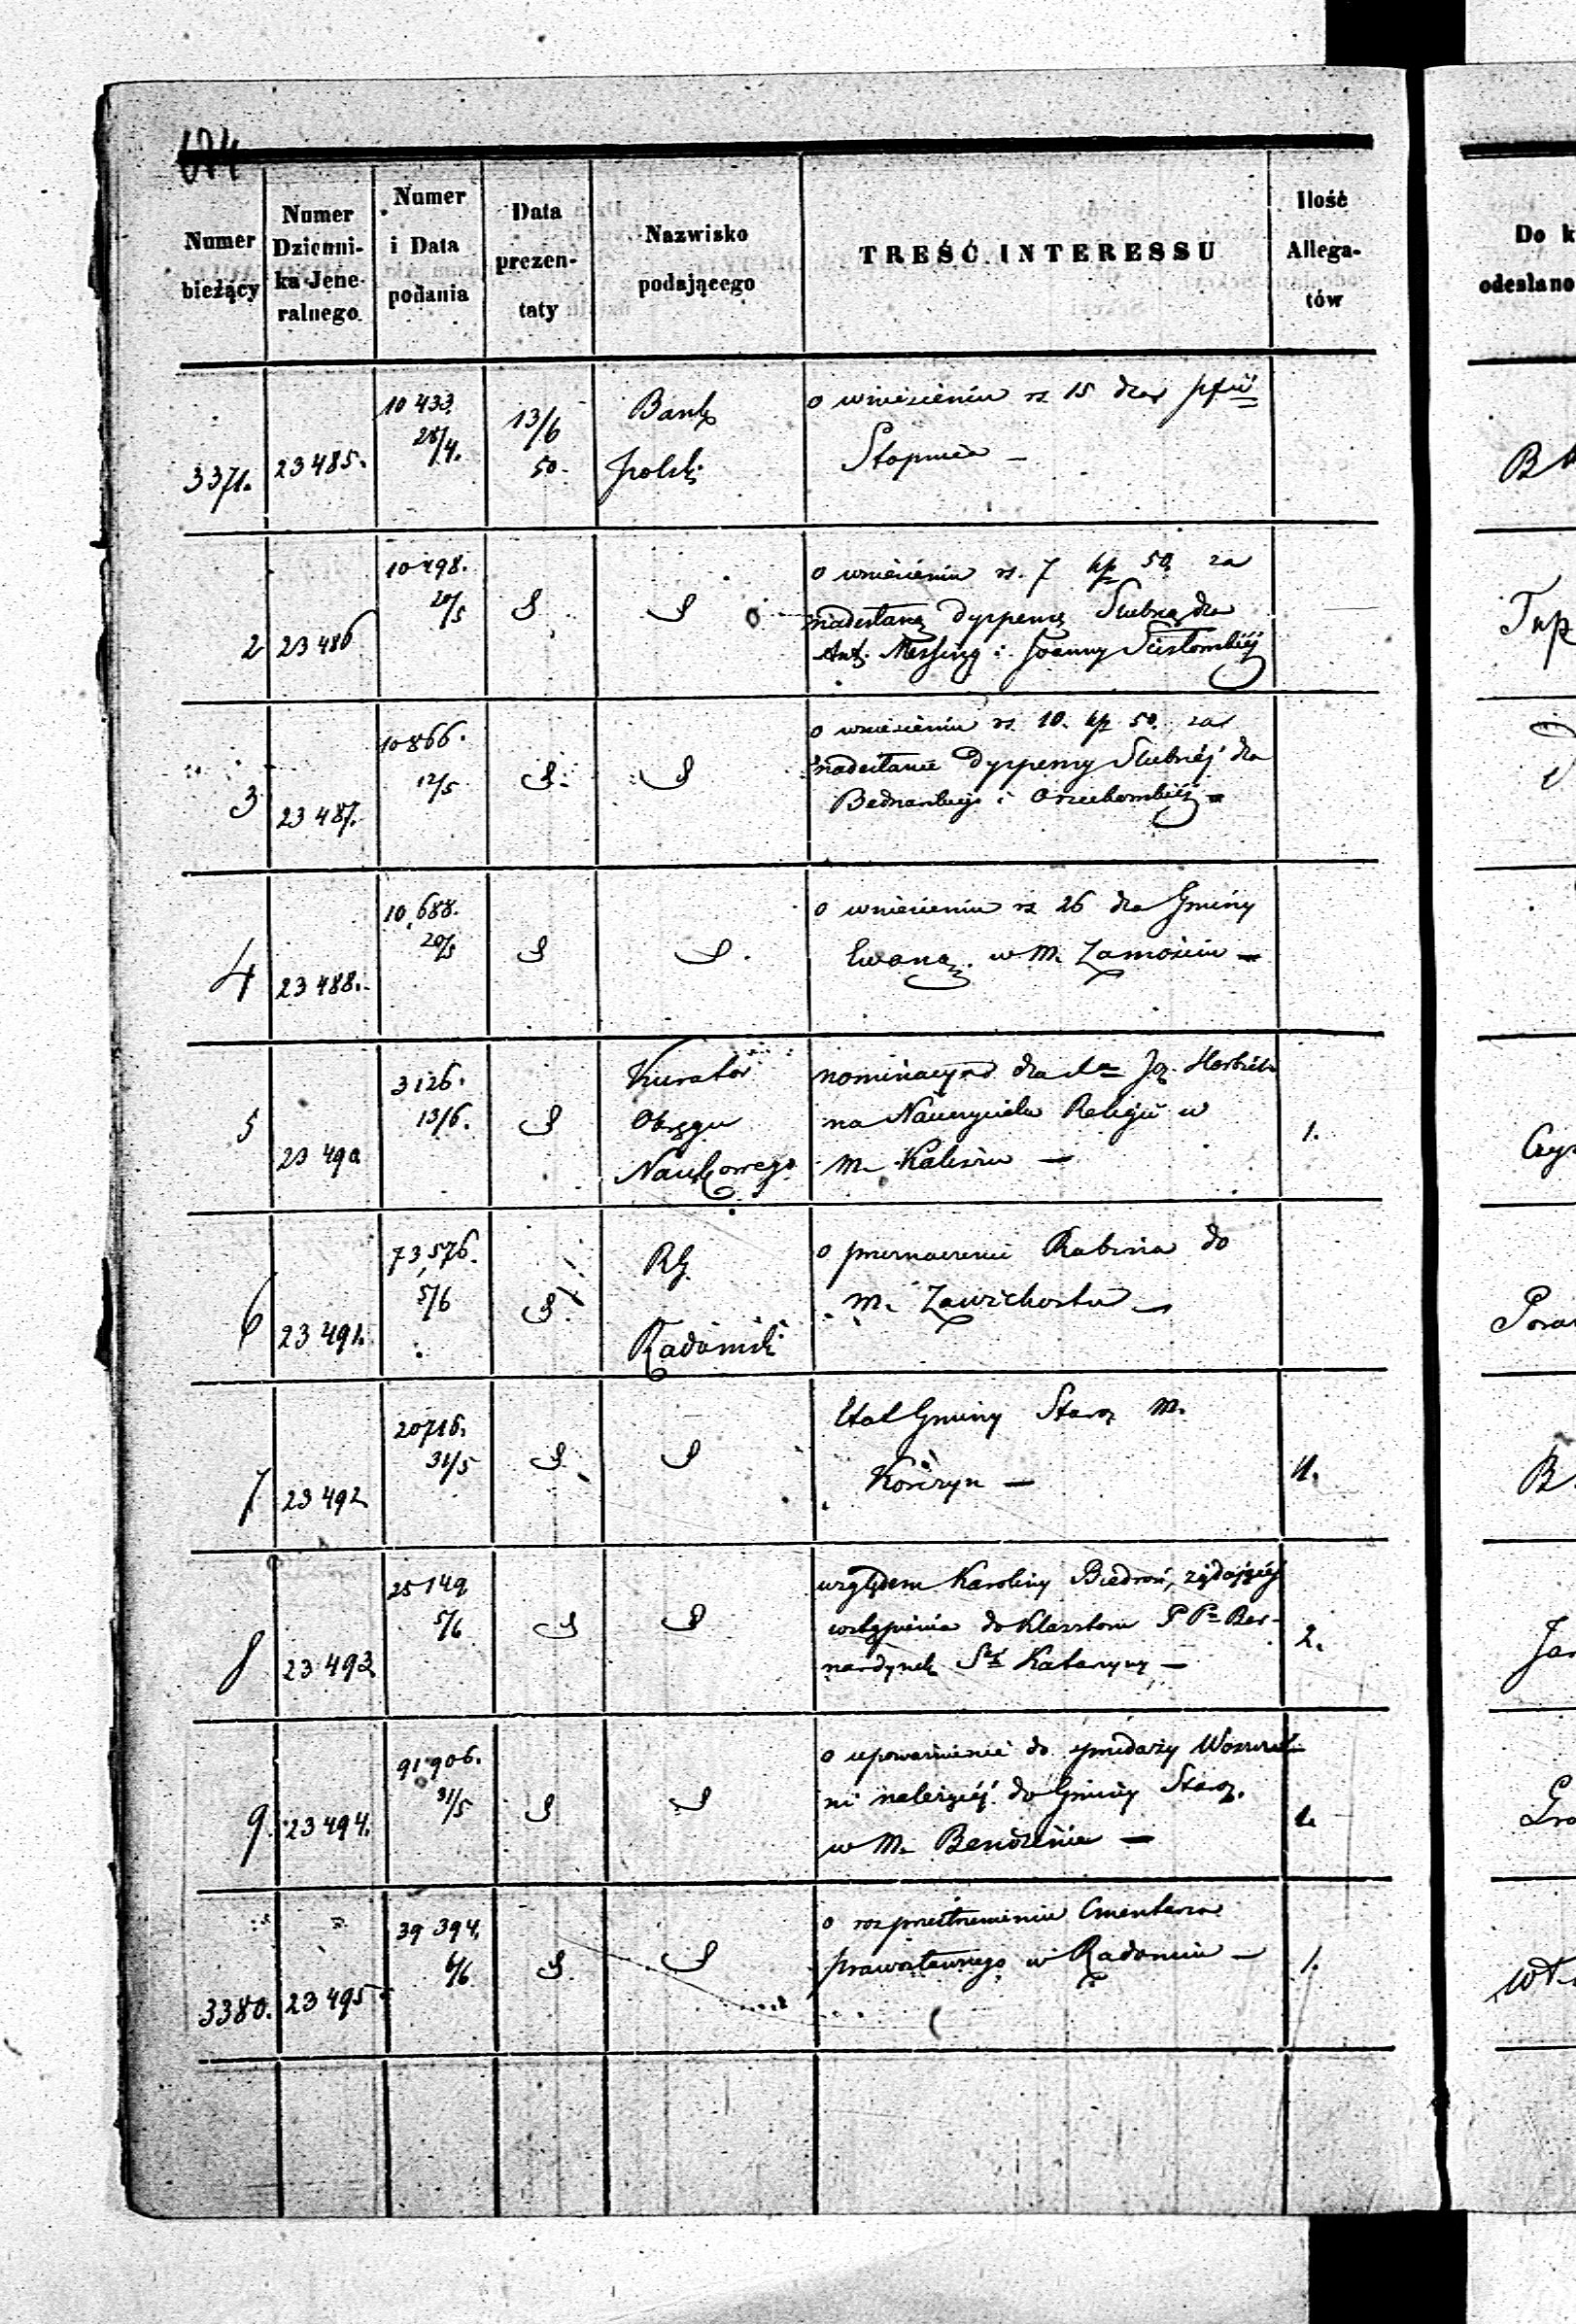 624
Numer bieżący
Numer Dzienni-
ka Jene-
ralnego
Numer
i Data
podania
Data
prezen-
taty
Nazwisko
podającego
TREŚĆ INTERESSU
Ilość
Allega-
tów
Do k
odesłano
3371. 23485. 10433. 28/4. 13/6 50. Bank Polski
o wniesieniu rs. 15 dla
Stopnica —
2 23486 10498. 20/5
o wniesieniu rs. 7 kp 50 za
nadesłaną dyspensę Ślubną dla
Ant. Messing i Joanny
3 23487. 10866. 12/5
o wniesieniu rs. 10. kp 50. za
nadesłanie dyspensy Ślubnej dla
Bednarskiego i Orzechowskiej —
4 23488. 10,688. 20/5
o wniesieniu rs 26 dla Gminy
Ewang. w M. Zamościu —
5 23490 3126. 13/6. Kurator
Okręgu
Naukowego
nominacya dla Joz.
na Nauczyciela Religii w
M. Kaliszu —
1.
6 23491. 73,576. 5/6 RG.
Radomski
o przeznaczenie Rabina do
M. Zawichostu —
7 23492 20716. 31/5
Etat Gminy Staroz. M.
Korczyn —
8 23493 25149 5/6
względem Karoliny Biedroń, żądającej
wstąpienia do Klasztoru P Pn Ber-
nardynek Stej Katarzyny —
2.
9. 23494. 91906. 31/5
o upoważnienie do sprzedaży
należącej do Gminy Staroz.
w M. Bendzinie —
1.
3380. 23495 39394. 6/6
o rozprzestrzenieniu Cmentarza
prawosławnego w Radomiu —
1.